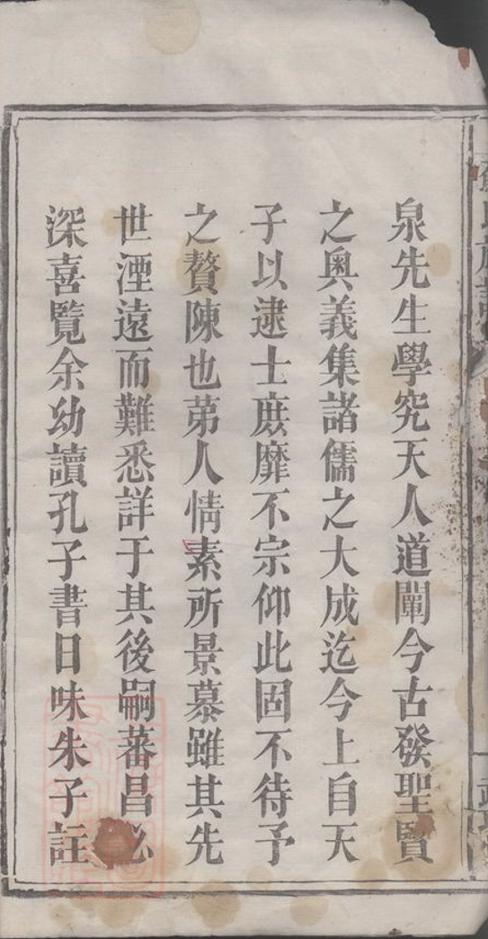 泉先生學究天人道闡今古發聖賢
之奧義集諸儒之大成迄今上自天
子以逮士庶靡不宗仰此固不待予
之贅陳也苐人情素所景慕雖其先
世湮遠而難悉詳于其後嗣蕃昌必
深喜覽余幼讀孔子書日味朱子註